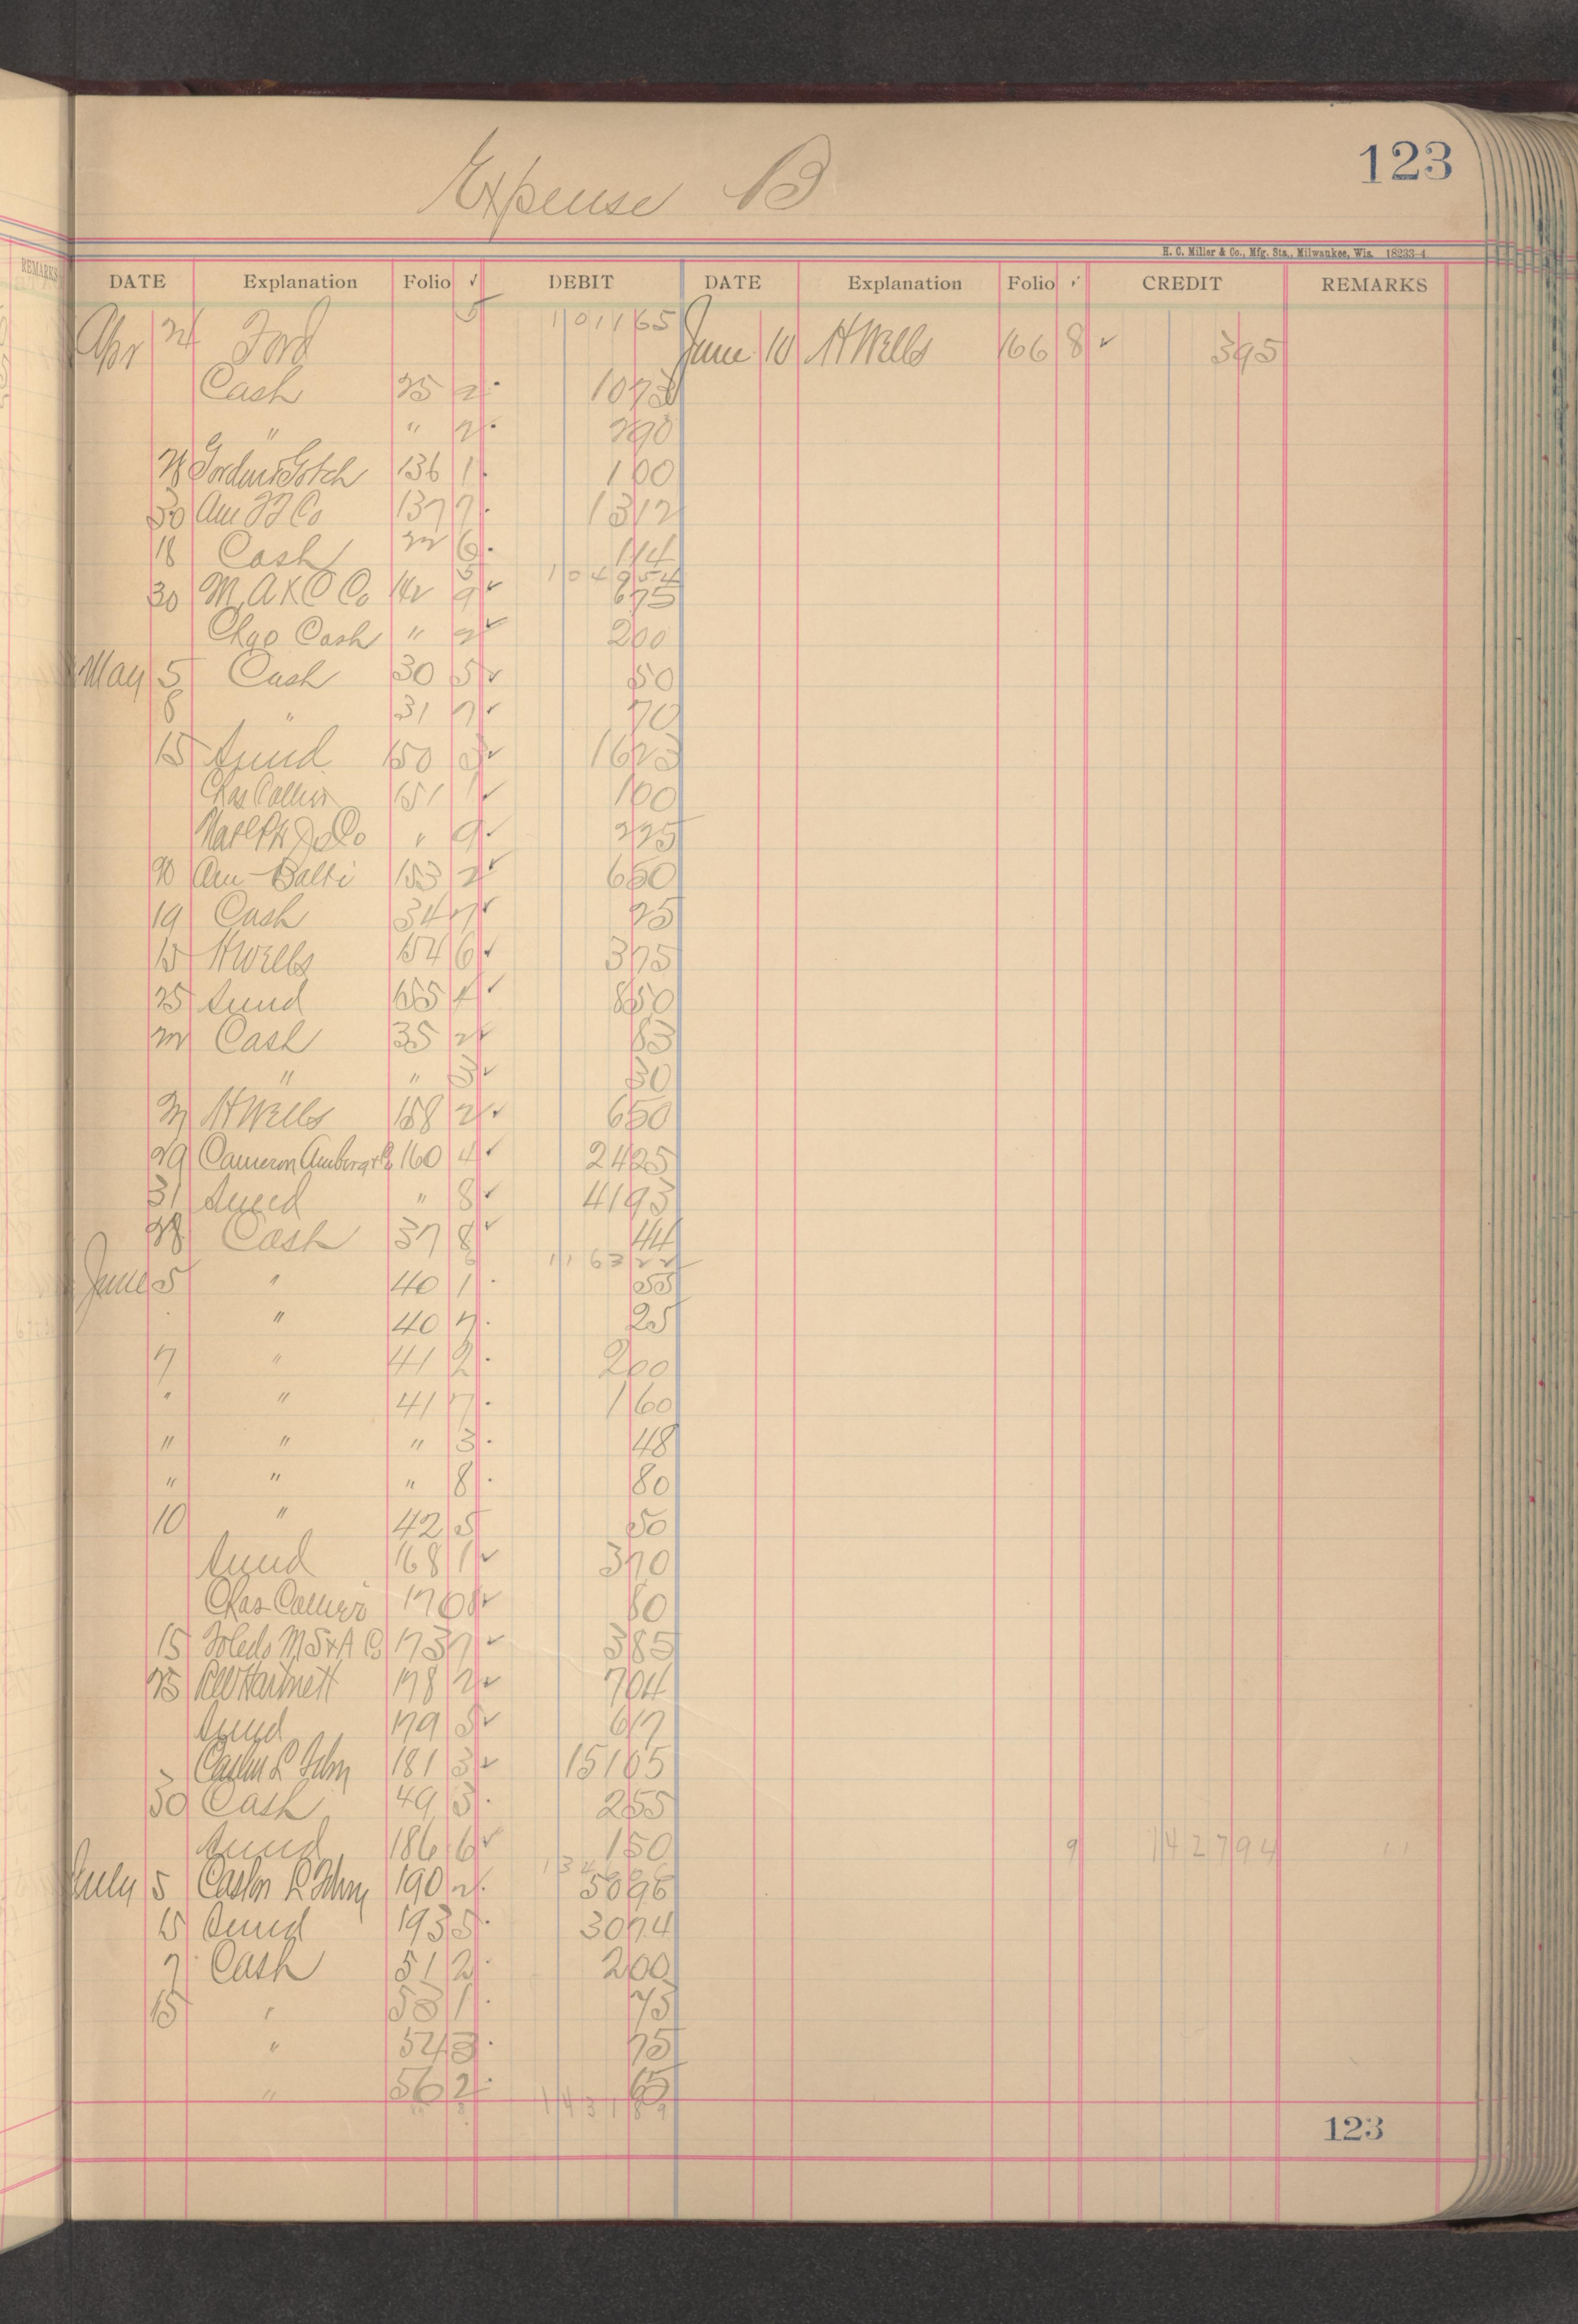 123
Expense B
H. C. Miller & Co., Mfg. Sta., Milwaukee, Wis. 18233-4
REMARKS
DATE Explanation Folio ✓ DEBIT DATE Explanation Folio ✓ CREDIT REMARKS
Apr 24 Ford 5 1 011 65 June 10 H Wells 166 8 ✓ 3 95
Cash 25 2 10 73
" " 2 2 90
Gordon & Gotch 136 1 1 00
30 Am Co 137 7 13 12
18 Cash 6 1 14
5 1 049 54
30 M. A & C Co 142 9 ✓ 6 75
Chgo Cash " 2 ✓ 2 00
May 5 Cash 30 5 ✓ 50
8 " 31 7 ✓ 70
15 Sund 150 3 ✓ 16 23
Chas Collier 151 1 ✓ 1 00
Co " 9 ✓ 2 25
20 Am-Balti 153 2 ✓ 6 50
19 Cash 34 7 ✓ 25
15 H Wells 154 6 ✓ 3 75
25 Sund 155 4 ✓ 8 50
22 Cash 35 2 ✓ 63
" " 3 ✓ 30
H Wells 158 2 ✓ 6 50
29 Cameron Amberg & Co 160 4 ✓ 24 25
31 Sund " 8 ✓ 41 93
28 Cash 37 8 ✓ 44
1 163 22
June 5 " 40 1 55
" 40 7 25
7 " 41 2 2 00
" " 41 7 1 60
" " " 3 48
" " " 8 80
10 " 42 5 50
Sund 168 1 ✓ 3 70
Chas Collier 170 ✓ 80
15 Toledo M S & A Co 173 7 ✓ 3 85
25 Hartnett 178 2 ✓ 7 04
Sund 179 5 ✓ 6 17
Caslon 181 3 ✓ 151 65
30 Cash 49 3 2 55
Sund 186 6 ✓ 1 50 9 1 427 94
July 5 Caslon 190 2 50 96
15 Sund 193 5 30 74
7 Cash 51 2 2 00
15 " 53 1 75
" 54 3 75
" 56 2 65
1 431 89
123